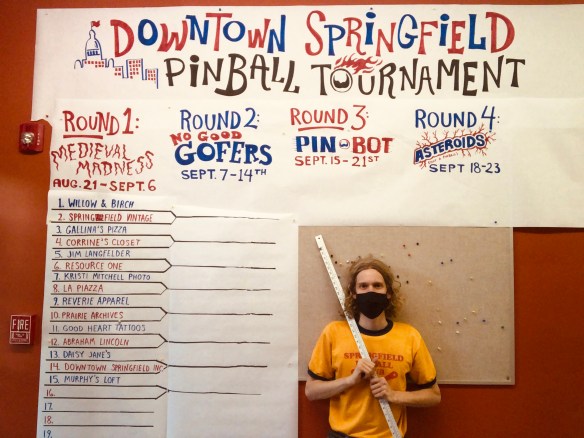 DOWNTOWN SPRINGFIELD
PINBALL TOURNAMENT
ROUND 1:
MEDIEVAL
MADNESS
AUG. 21 - SEPT. 6
ROUND 2:
NO GOOD
GOFERS
SEPT. 7-14TH
ROUND 3:
PIN BOT
SEPT. 15-21ST
ROUND 4:
ASTEROIDS
SEPT 18-23
1. WILLOW & BIRCH
2. SPRINGFIELD VINTAGE
3. GALLINA'S PIZZA
4. CORRINE'S CLOSET
5. JIM LANGFELDER
6. RESOURCE ONE
7. KRISTI MITCHELL PHOTO
8. LA PIAZZA
9. REVERIE APPAREL
10. PRAIRIE ARCHIVES
11. GOOD HEART TATTOOS
12. ABRAHAM LINCOLN
13. DAISY JANE'S
14. DOWNTOWN SPRINGFIELD INC
15. MURPHY'S LOFT
16.
17.
18.
19.
FIRE
SPRINGFIELD